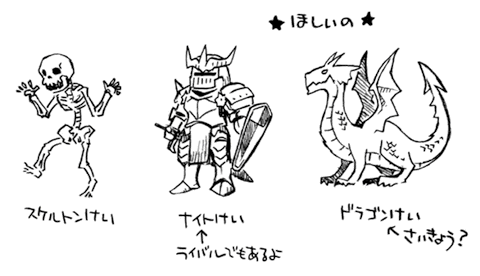 ★ほしいの★
スケルトンけい
ナイトけい
↑
ライバルでもあるよ
ドラゴンけい
↖さいきょう?